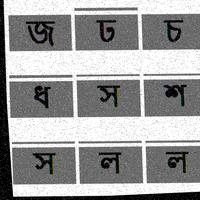 জ ঢ চ
ধ স শ
স ল ল